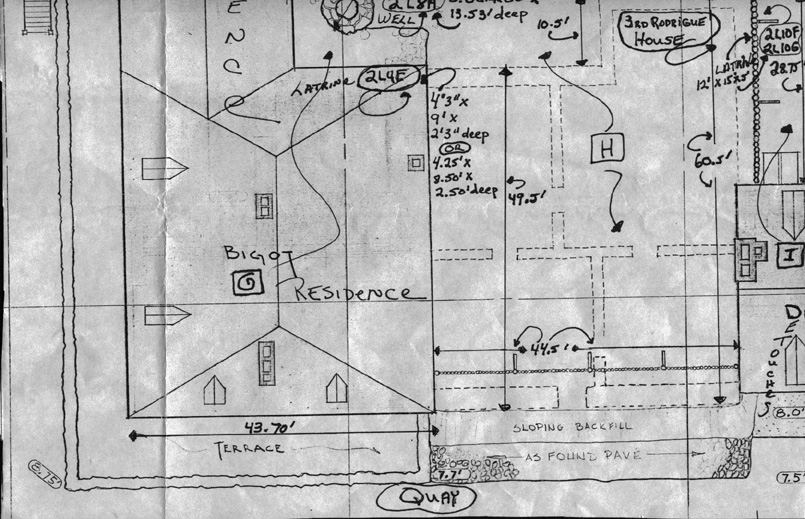 ENCO
2L8A
WELL
13.53' deep
10.5'
3RD RODRIGUE
HOUSE
LATRINE
12' X 15.25'
2L10F
2L10G
28.75
LATRINE
2L4E
4'3" X
9' X
2'3" deep
OR
4.25' X
8.50' X
2.50' deep
49.5'
H
60.5'
BIGOT
G
RESIDENCE
I
D
DETOUCHES
44.5'
43.70'
TERRACE
SLOPING BACKFILL
AS FOUND PAVE
8.0'
8.75'
7.7'
QUAY
7.5'